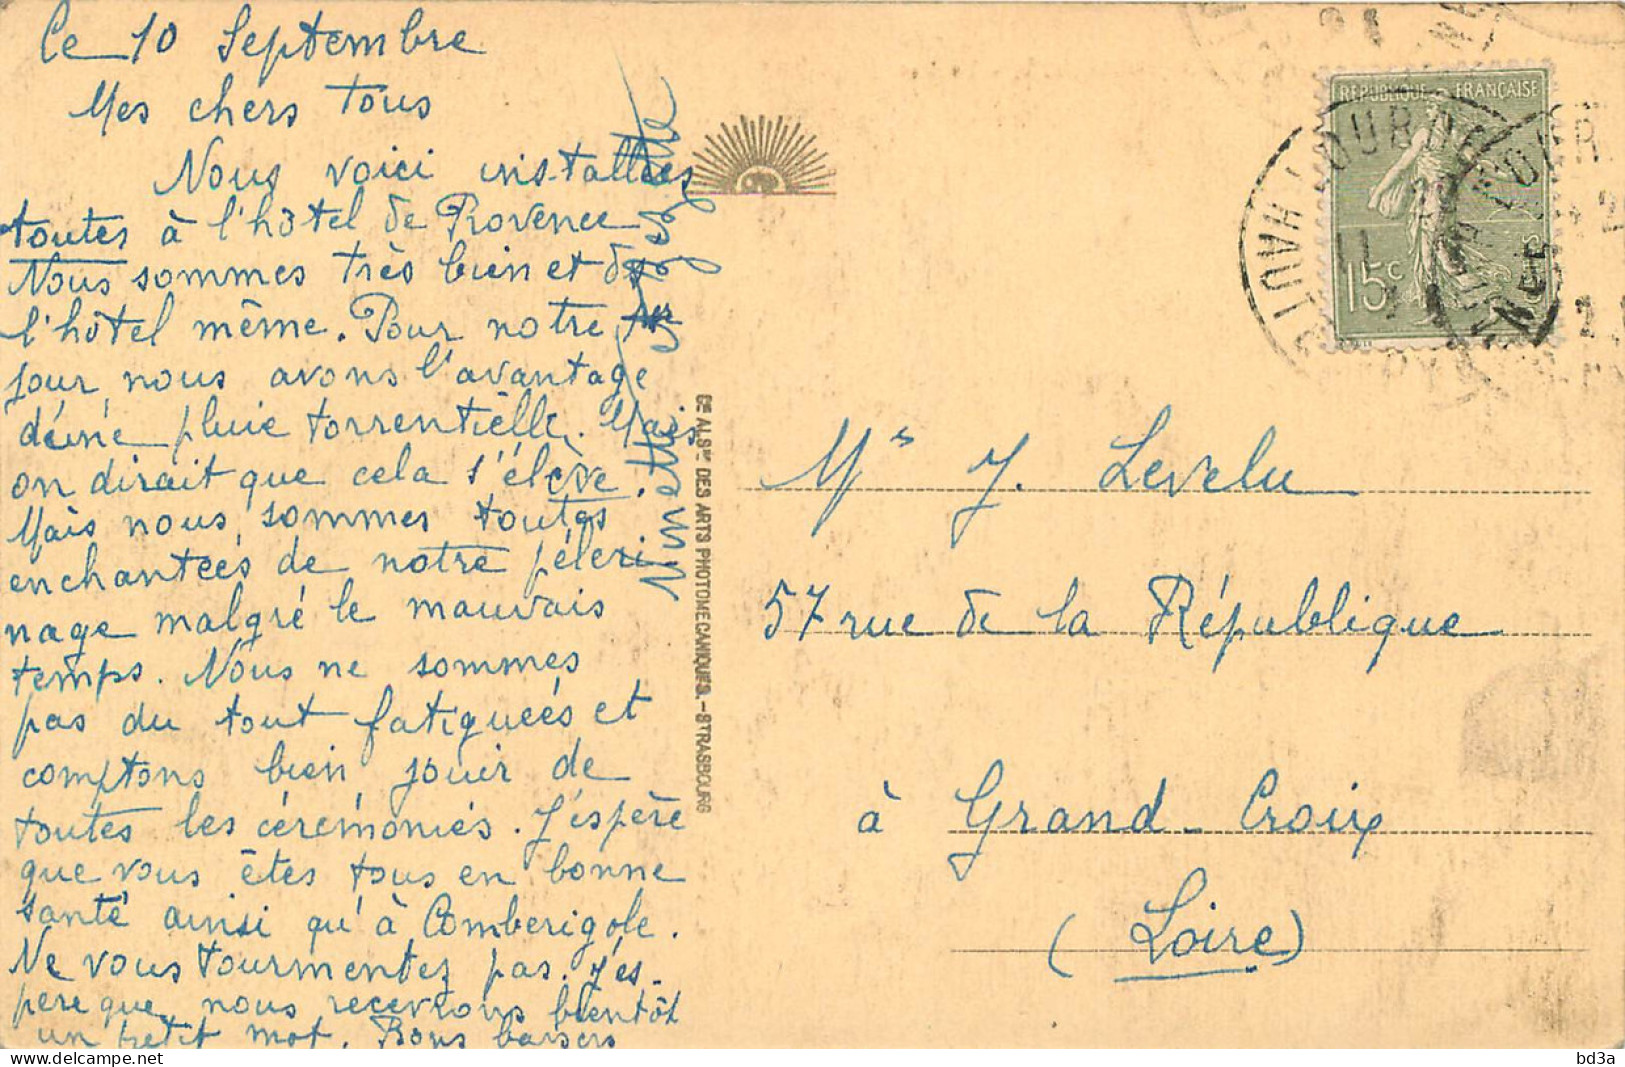 Ce 10 Septembre
Mes chers tous
Nous voici installées
toutes à l'hôtel de Provence
Nous sommes très bien et de
l'hôtel même. Pour notre 1er
jour, nous avons l'avantage
d'une pluie torrentielle. Mais
on dirait que cela s'élève.
Mais nous sommes toutes
enchantées de notre pèleri
nage malgré le mauvais
temps. Nous ne sommes
pas du tout fatiguées et
comptons bien jouir de
toutes les cérémonies. J'espère
que vous êtes tous en bonne
santé ainsi qu'à Comberigole.
Ne vous tourmentez pas. J'es-
père que nous recevrons bientôt
un petit mot. Bons baisers
Ninette
CIE ALSNE DES ARTS PHOTOMECANIQUES. - STRASBOURG
REPUBLIQUE FRANÇAISE
15c
LOURDES
HAUTES
11
Ms J. Levelu
57 rue de la République
à Grand-Croix
(Loire)
bd3a
www.delcampe.net